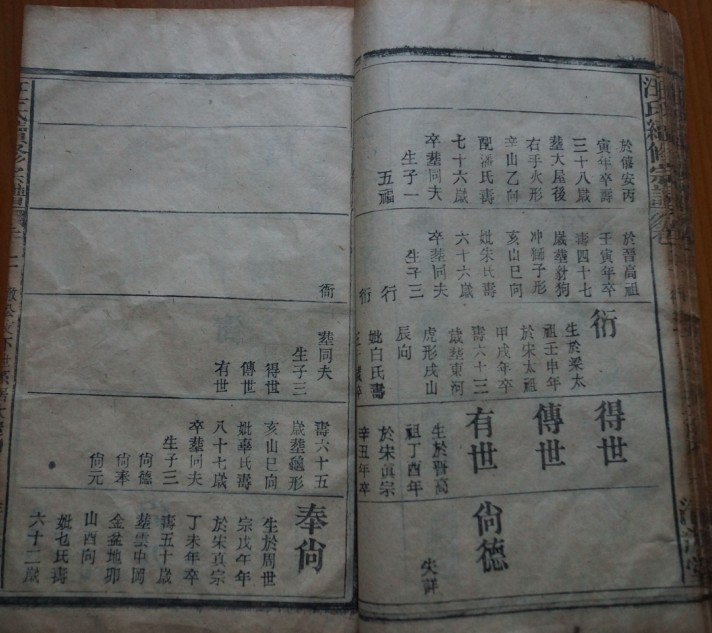 汪氏續修宗譜卷
於僖安丙
寅年卒壽
三十八歲
塟大屋後
右手火形
辛山乙向
配潘氏壽
七十六歲
卒塟同夫
生子一
五福
於晉高祖
壬寅年卒
壽四十七
歲塟豺狗
冲獅子形
亥山巳向
妣朱氏壽
六十六歲
卒塟同夫
生子三
行
衍
生於梁太
祖壬申年
於宋太祖
甲戌年卒
壽六十三
歲塟東河
虎形戌山
辰向
妣白氏壽
得世
傳世
有世
生於晉高
祖丁酉年
於宋眞宗
辛丑年卒
尙德
失詳
衙
塟同夫
生子三
得世
傳世
有世
壽六十五
歲塟龜形
亥山巳向
妣辜氏壽
八十七歲
卒塟同夫
生子三
尙德
尙奉
尙元
奉尙
生於周世
宗戊午年
於宋真宗
丁未年卒
壽五十歲
塟雲中岡
金盆地卯
山酉向
妣乜氏壽
六十二歲